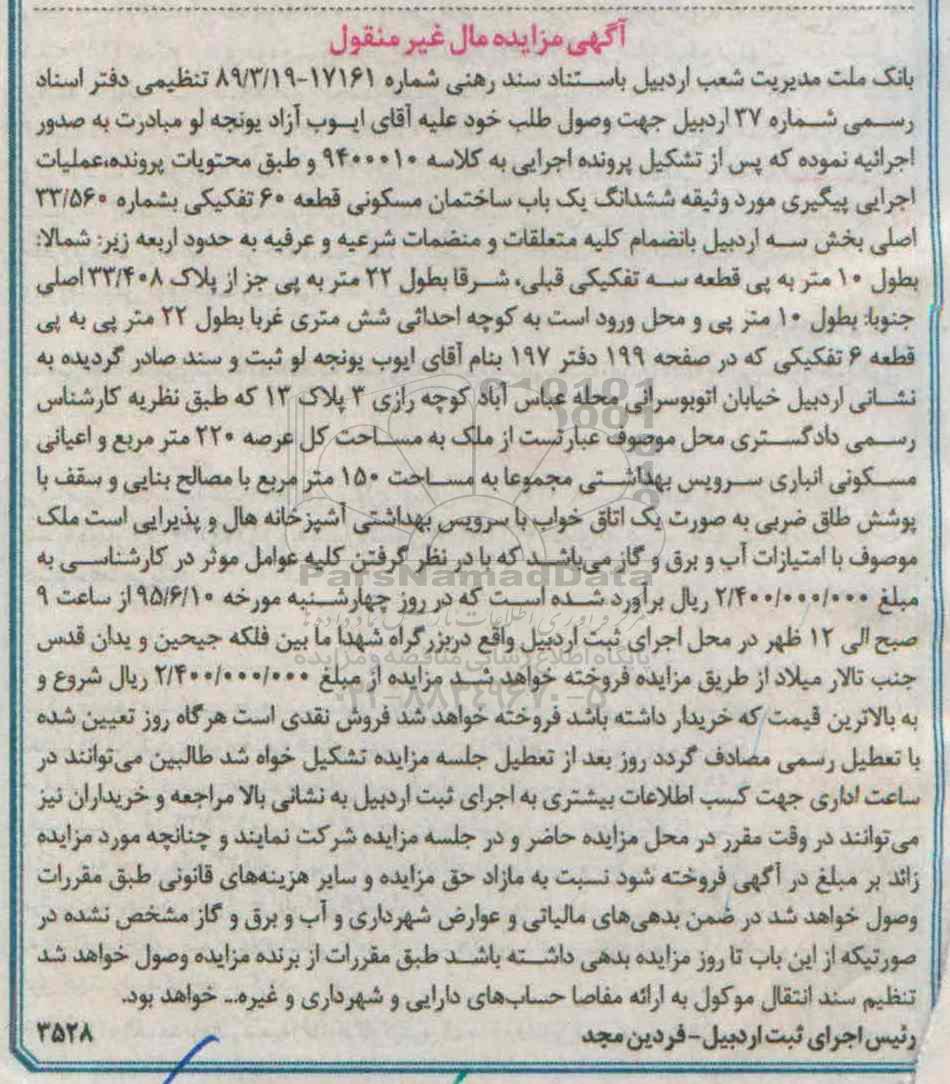 آگهی مزایده مال غیر منقول
بانک ملت مدیریت شعب اردبیل باستناد سند رهنی شماره ۱۷۱۶۱-۸۹/۳/۱۹ تنظیمی دفتر اسناد
رسمی شماره ۳۷ اردبیل جهت وصول طلب خود علیه آقای ایوب آزاد یونجه لو مبادرت به صدور
اجرائیه نموده که پس از تشکیل پرونده اجرایی به کلاسه ۹۴۰۰۰۱۰ و طبق محتویات پرونده،عملیات
اجرایی پیگیری مورد وثیقه ششدانگ یک باب ساختمان مسکونی قطعه ۶۰ تفکیکی بشماره ۳۳/۵۶۰
اصلی بخش سه اردبیل بانضمام کلیه متعلقات و منضمات شرعیه و عرفیه به حدود اربعه زیر: شمالا:
بطول ۱۰ متر به پی قطعه سه تفکیکی قبلی، شرقا بطول ۲۲ متر به پی جز از پلاک ۳۳/۴۰۸ اصلی
جنوبا: بطول ۱۰ متر پی و محل ورود است به کوچه احداثی شش متری غربا بطول ۲۲ متر پی به پی
قطعه ۶ تفکیکی که در صفحه ۱۹۹ دفتر ۱۹۷ بنام آقای ایوب یونجه لو ثبت و سند صادر گردیده به
نشانی اردبیل خیابان اتوبوسرانی محله عباس آباد کوچه رازی ۳ پلاک ۱۳ که طبق نظریه کارشناس
رسمی دادگستری محل موصوف عبارتست از ملک به مساحت کل عرصه ۲۲۰ متر مربع و اعیانی
مسکونی انباری سرویس بهداشتی مجموعا به مساحت ۱۵۰ متر مربع با مصالح بنایی و سقف با
پوشش طاق ضربی به صورت یک اتاق خواب با سرویس بهداشتی آشپزخانه هال و پذیرایی است ملک
موصوف با امتیازات آب و برق و گاز می‌باشد که با در نظر گرفتن کلیه عوامل موثر در کارشناسی به
مبلغ ۲/۴۰۰/۰۰۰/۰۰۰ ریال برآورد شده است که در روز چهارشنبه مورخه ۹۵/۶/۱۰ از ساعت ۹
صبح الی ۱۲ ظهر در محل اجرای ثبت اردبیل واقع دربزرگراه شهدا ما بین فلکه جیحین و یدان قدس
جنب تالار میلاد از طریق مزایده فروخته خواهد شد مزایده از مبلغ ۲/۴۰۰/۰۰۰/۰۰۰ ریال شروع و
به بالاترین قیمت که خریدار داشته باشد فروخته خواهد شد فروش نقدی است هرگاه روز تعیین شده
با تعطیل رسمی مصادف گردد روز بعد از تعطیل جلسه مزایده تشکیل خواه شد طالبین می‌توانند در
ساعت اداری جهت کسب اطلاعات بیشتری به اجرای ثبت اردبیل به نشانی بالا مراجعه و خریداران نیز
می‌توانند در وقت مقرر در محل مزایده حاضر و در جلسه مزایده شرکت نمایند و چنانچه مورد مزایده
زائد بر مبلغ در آگهی فروخته شود نسبت به مازاد حق مزایده و سایر هزینه‌های قانونی طبق مقررات
وصول خواهد شد در ضمن بدهی‌های مالیاتی و عوارض شهرداری و آب و برق و گاز مشخص نشده در
صورتیکه از این باب تا روز مزایده بدهی داشته باشد طبق مقررات از برنده مزایده وصول خواهد شد
تنظیم سند انتقال موکول به ارائه مفاصا حساب‌های دارایی و شهرداری و غیره... خواهد بود.
رئیس اجرای ثبت اردبیل-فردین مجد
۳۵۲۸
ParsNamadData
پایگاه اطلاع رسانی مناقصه و مزایده
۰۲۱-۸۸۳۴۹۶۷۰-۵